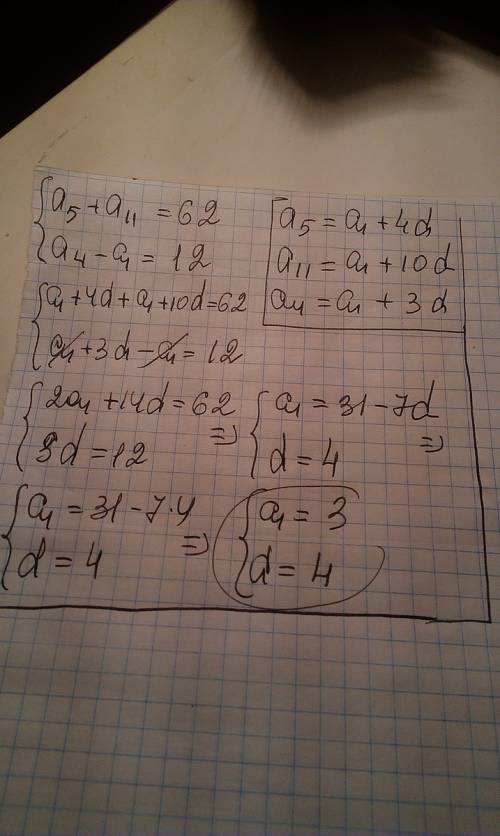 a₅ + a₁₁ = 62
a₄ - a₁ = 12
a₅ = a₁ + 4d
a₁₁ = a₁ + 10d
a₄ = a₁ + 3d
a₁ + 4d + a₁ + 10d = 62
a₁ + 3d - a₁ = 12
2a₁ + 14d = 62
3d = 12
=>
a₁ = 31 - 7d
d = 4
=>
a₁ = 31 - 7·4
d = 4
=>
a₁ = 3
d = 4